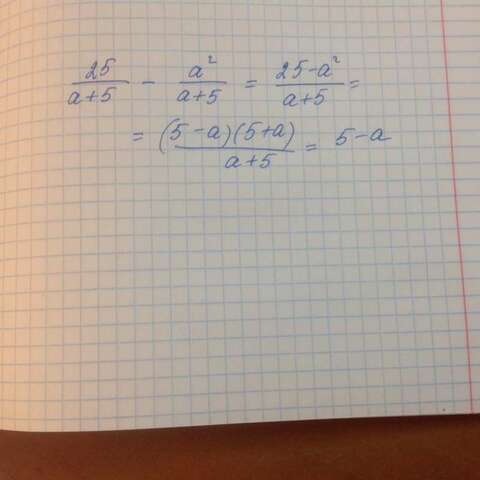 25/(a+5) - a²/(a+5) = (25-a²)/(a+5) =
= (5-a)(5+a)/(a+5) = 5-a